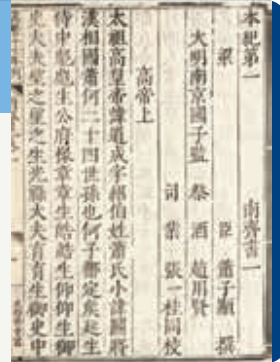 本紀第一　南齊書一
梁　臣　蕭子顯　撰
大明南京國子監　祭酒　趙用賢
司業　張一桂同校
高帝上
太祖高皇帝諱道成字紹伯姓蕭氏小諱鬬將
漢相國蕭何二十四世孫也何子酇定矦延生
侍中彪彪生公府掾章章生皓皓生仰仰生御
史大夫望之望之生光祿大夫育育生御史中